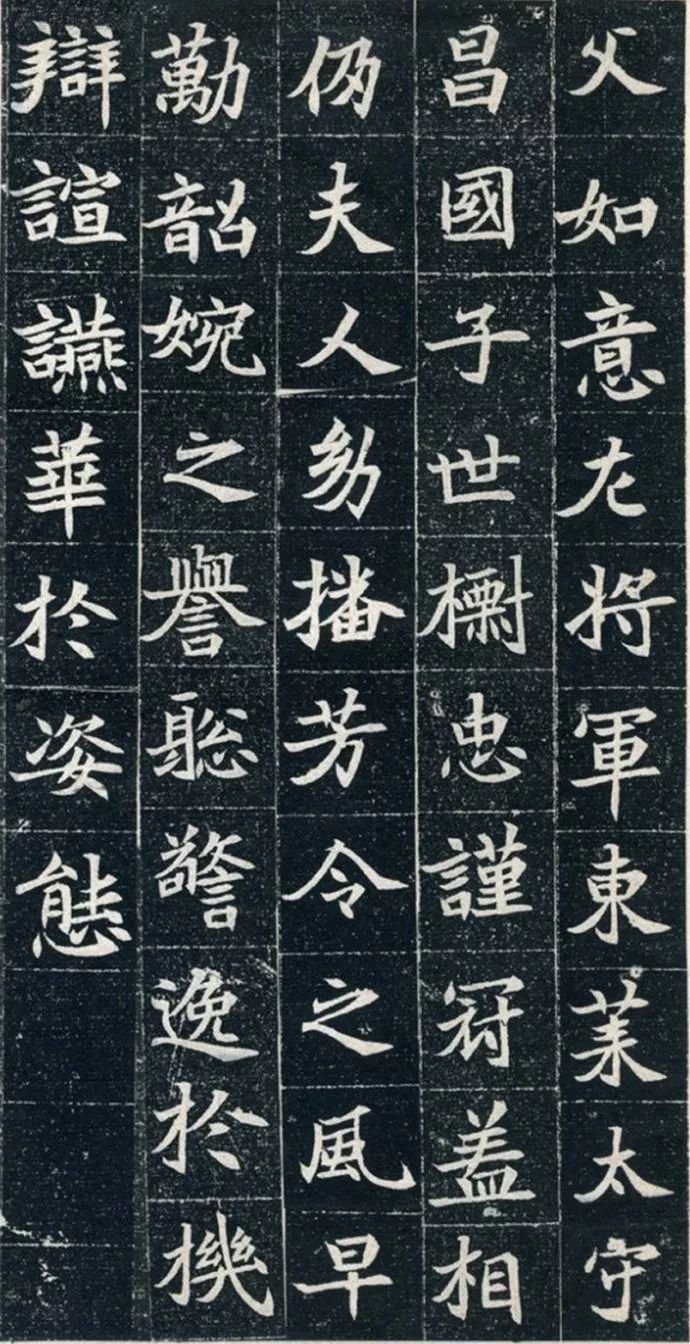 父如意左将軍東莱太守
昌國子世樹忠謹冠盖相
仍夫人幼播芳令之風早
勱韶婉之譽聡警逸於機
辯諠讌華於姿態